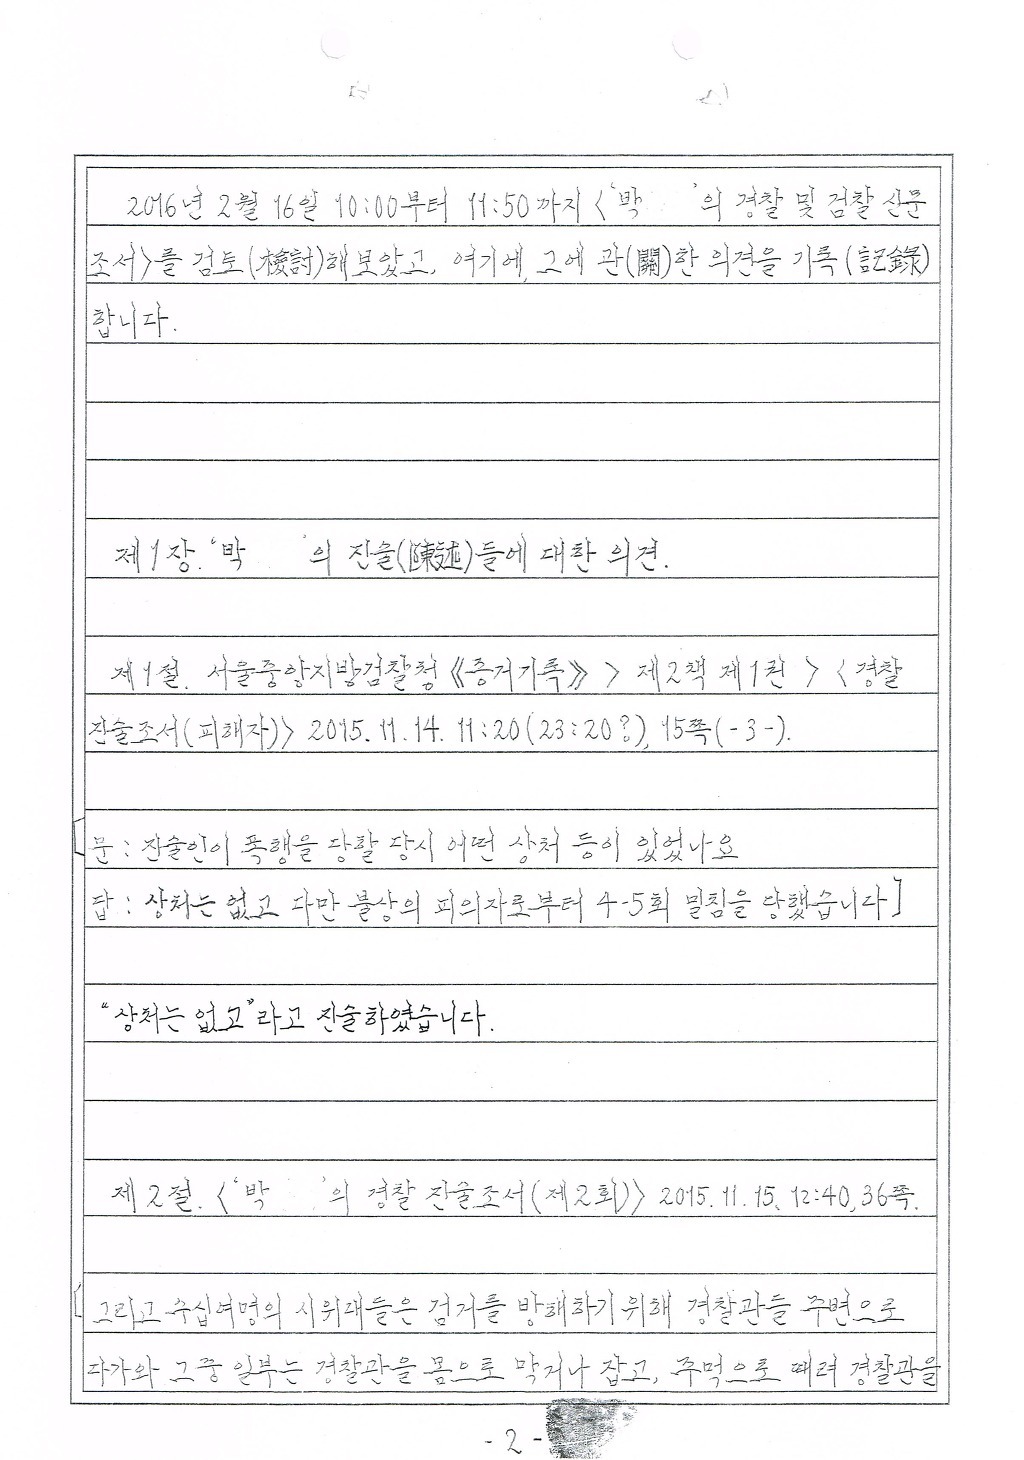 2016년 2월 16일 10:00부터 11:50까지 <'박 '의 경찰 및 검찰 신문
조서>를 검토(檢討)해보았고, 여기에, 그에 관(關)한 의견을 기록(記錄)
합니다.
제1장. '박 '의 진술(陳述)들에 대한 의견.
제1절. 서울중앙지방검찰청 《증거기록》 > 제2책 제1권 > <경찰
진술조서(피해자)> 2015. 11. 14. 11:20(23:20?), 15쪽(-3-).
[문 : 진술인이 폭행을 당할 당시 어떤 상처 등이 있었나요
답 : 상처는 없고 다만 불상의 피의자로부터 4-5회 밀침을 당했습니다]
“상처는 없고”라고 진술하였습니다.
제2절. <'박 '의 경찰 진술조서(제2회)> 2015. 11. 15. 12:40, 36쪽.
[그리고 수십여명의 시위대들은 검거를 방해하기 위해 경찰관들 주변으로
다가와 그중 일부는 경찰관을 몸으로 막거나 잡고, 주먹으로 때려 경찰관을
- 2 -